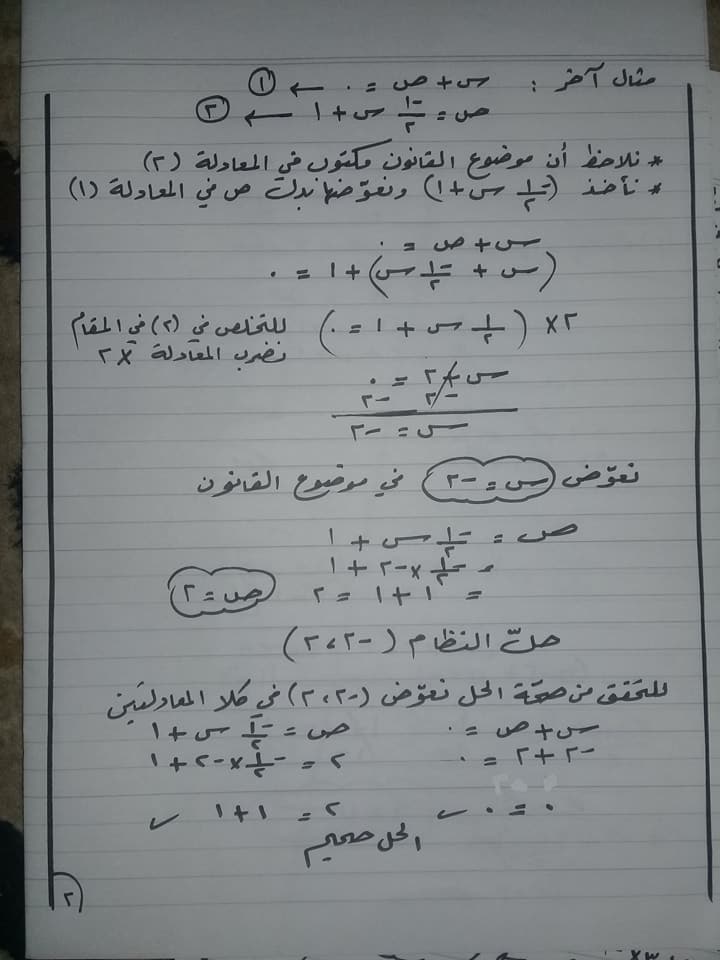 مثال آخر : س + ص = ٠ ← ①
ص = -١/٢ س + ١ ← ②
* نلاحظ أن موضوع القانون مكتوب في المعادلة (٢)
* نأخذ (-١/٢ س + ١) ونعوّضها بدل ص في المعادلة (١)
س + ص = ٠
(س + -١/٢ س) + ١ = ٠
٢× (١/٢ س + ١ = ٠) للتخلص في (٢) في المقام
نضرب المعادلة ×٢
س + ٢ = ٠
-٢ -٢
س = -٢
نعوّض س = -٢ في موضوع القانون
ص = -١/٢ س + ١
= -١/٢ × -٢ + ١
= ١ + ١ = ٢ ص = ٢
حلّ النظام (-٢ ، ٢)
للتحقق من صحة الحل نعوّض (-٢ ، ٢) في كلا المعادلتين
س + ص = ٠ ص = -١/٢ س + ١
-٢ + ٢ = ٠ ٢ = -١/٢ × -٢ + ١
٠ = ٠ ✓ ٢ = ١ + ١ ✓
الحل صحيح
٢